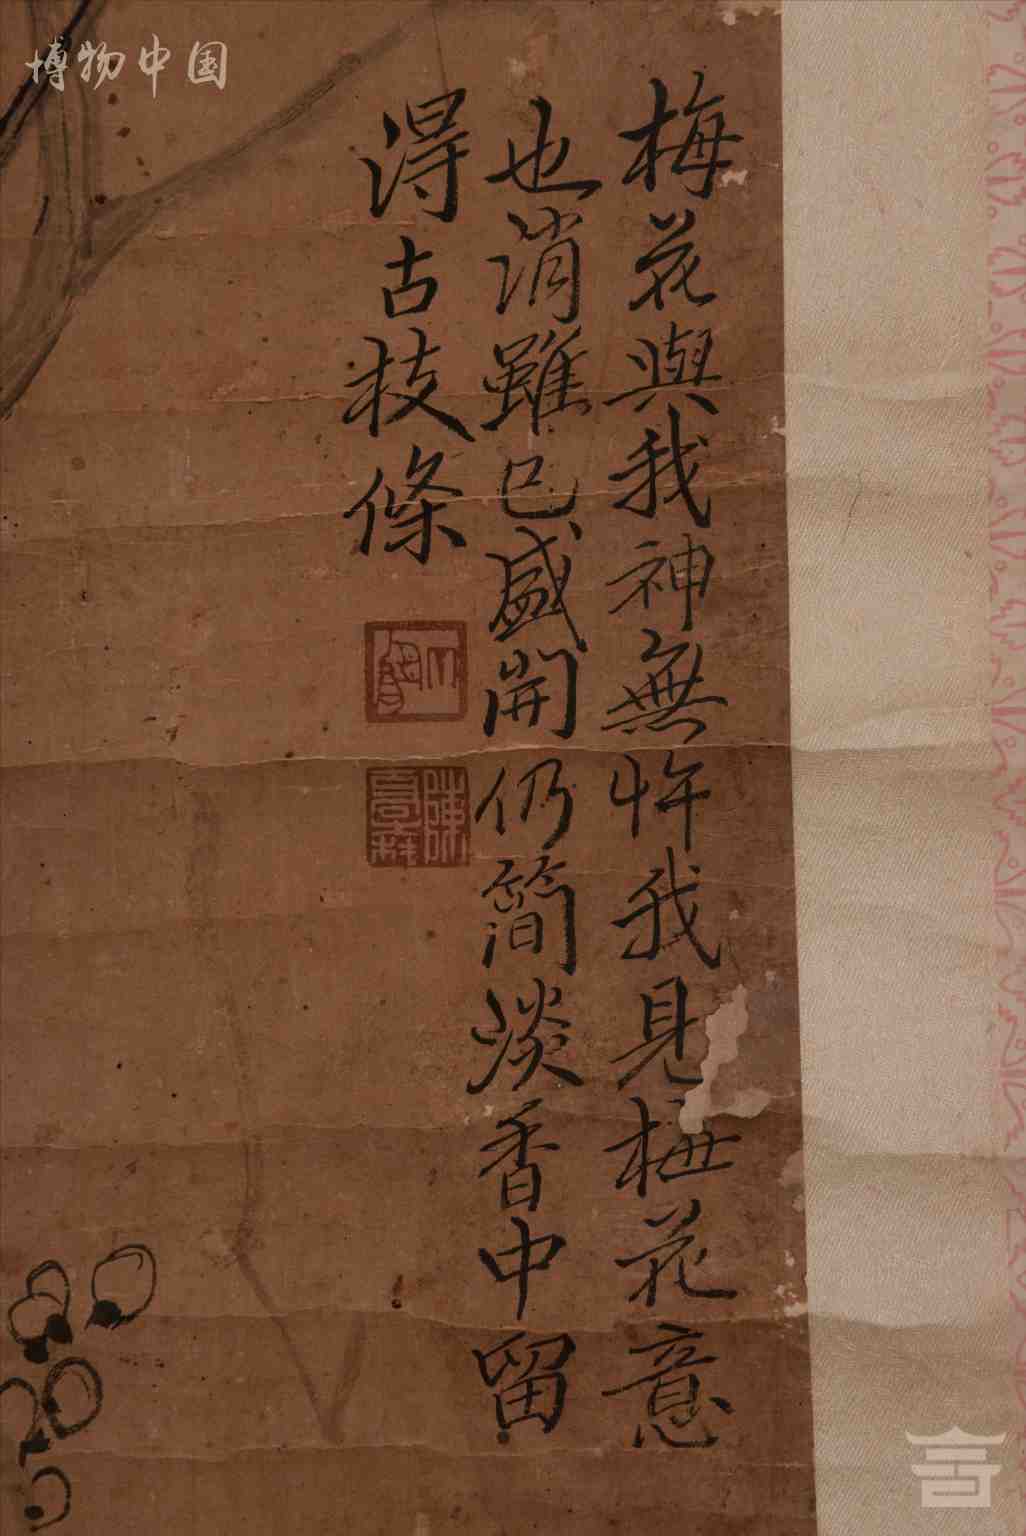 博物中国
梅花與我神無忤我見梅花意
也消雖已盛開仍簡淡香中留
得古枝條